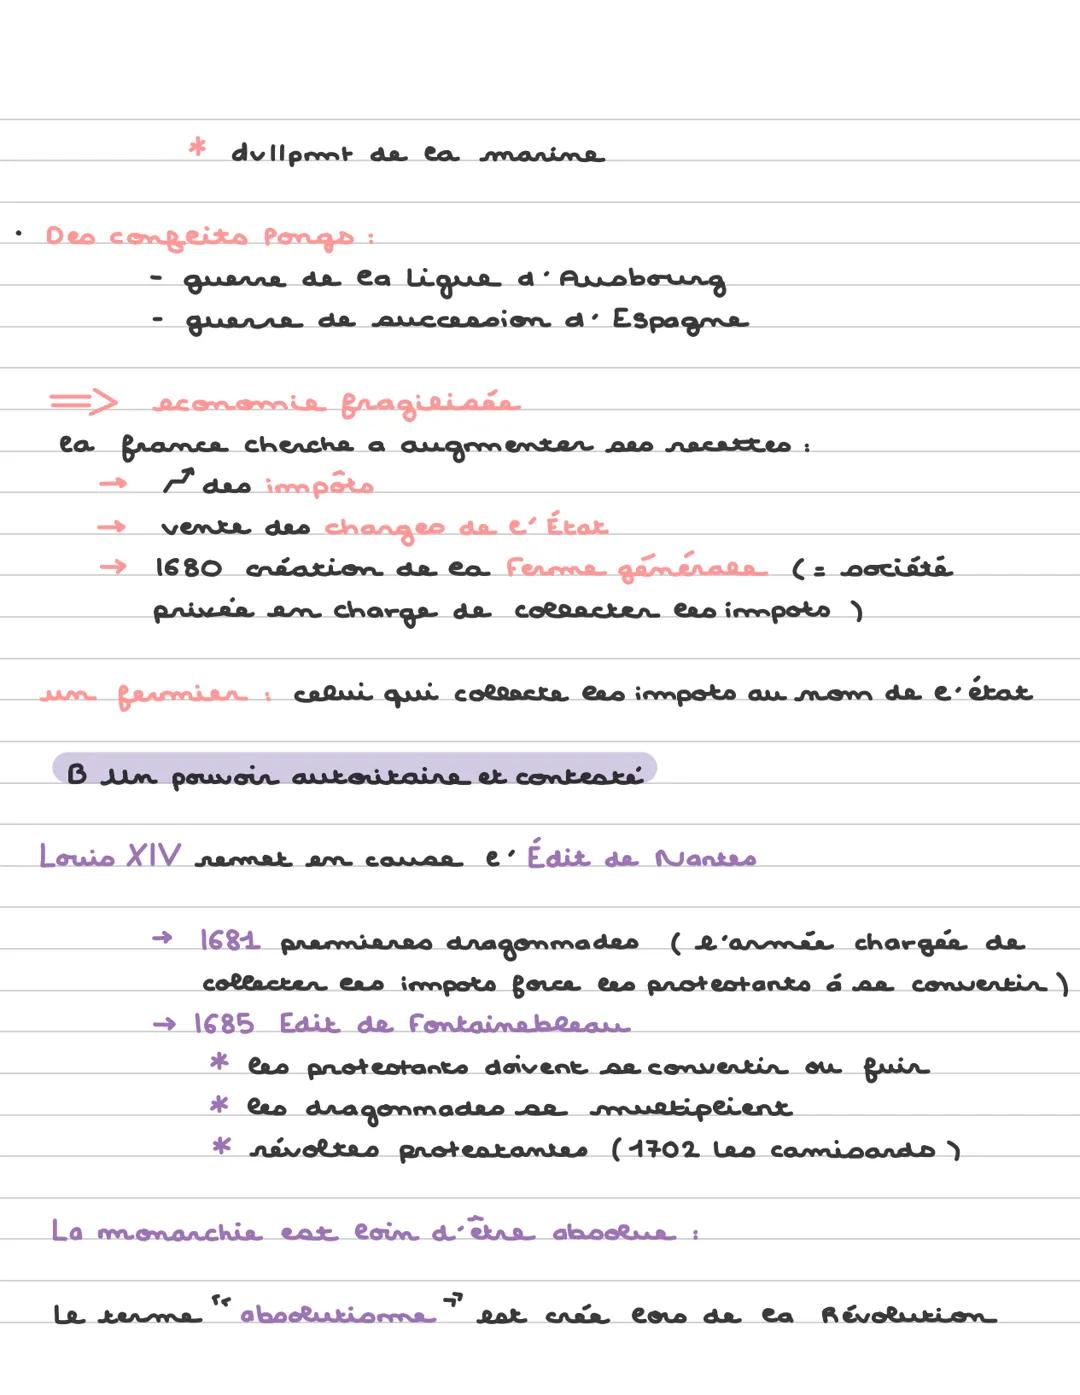 * dvllpmnt de la marine
· Des conflits longs :
- guerre de la Ligue d'Ausbourg
- guerre de succession d'Espagne
⇒ economie fragilisée
la france cherche a augmenter ses recettes :
→ ↗ des impôts
→ vente des charges de l'État
→ 1680 création de la Ferme générale (= société
privée en charge de collecter les impots )
un fermier : celui qui collecte les impots au nom de l'état
B Un pouvoir autoritaire et contesté
Louis XIV remet en cause l'Édit de Nantes
→ 1681 premieres dragonnades ( l'armée chargée de
collecter les impots force les protestants á se convertir )
→ 1685 Edit de Fontainebleau
* les protestants doivent se convertir ou fuir
* les dragonnades se multiplient
* révoltes protestantes (1702 les camisards )
La monarchie est loin d'être absolue :
Le terme "absolutisme" est crée lors de la Révolution